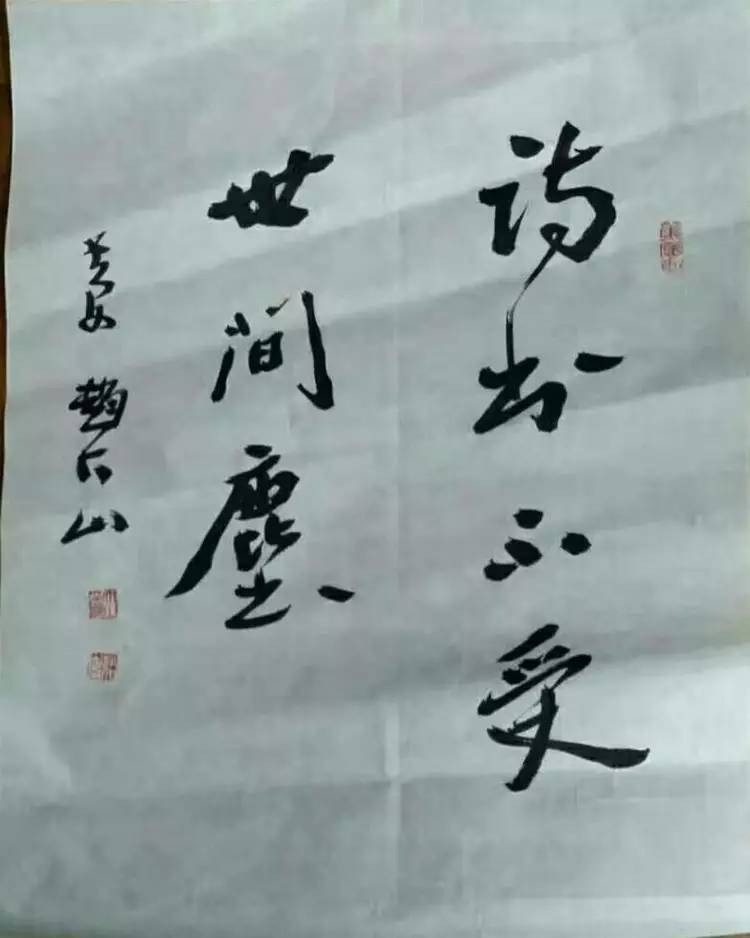 诗书不受
世间尘
黄安 赵石山